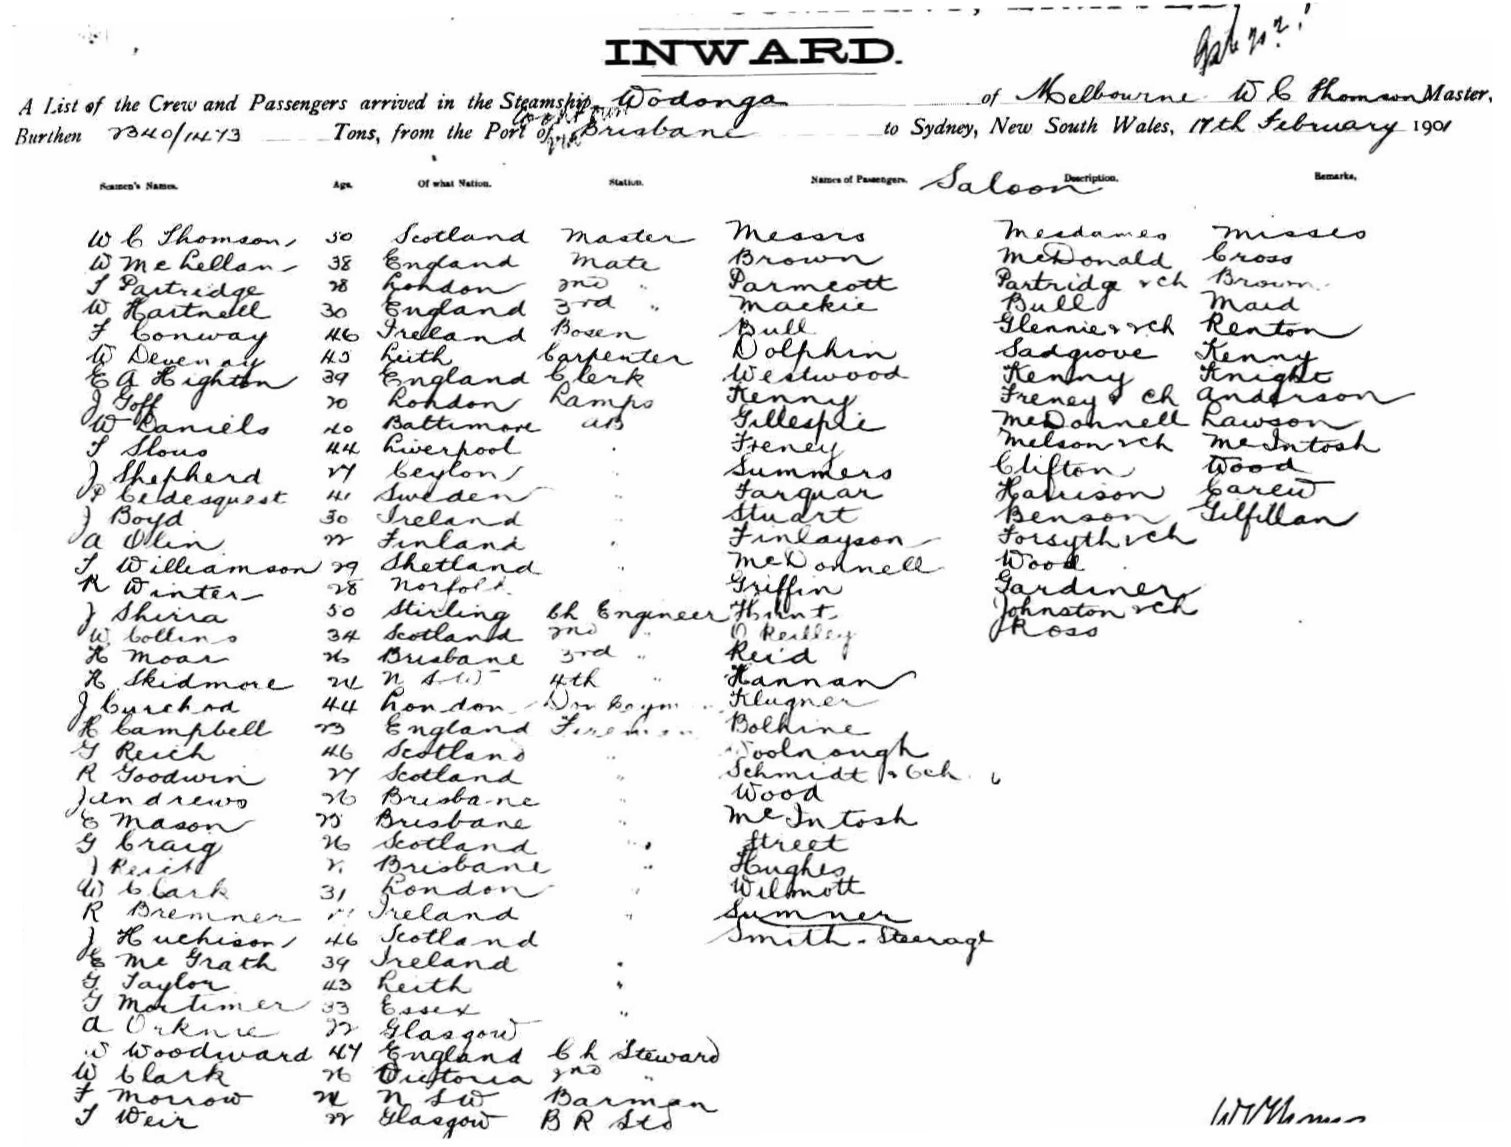 INWARD.
A List of the Crew and Passengers arrived in the Steamship Wodonga of Melbourne W C Thomson Master,
Burthen 2340/1473 Tons, from the Port of via Brisbane to Sydney, New South Wales, 17th February 1901
Seamen's Names. Age. Of what Nation. Station. Names of Passengers. Saloon Description. Remarks.
W C Thomson 50 Scotland Master Messrs Mesdames Misses
W McLellan 38 England Mate Brown McDonald Cross
T Partridge 28 London 2nd " Parmcott Partridge & ch Brown
W Hartnell 30 England 3rd " Mackie Bull Maid
F Conway 46 Ireland Bosen Bull Glennie & ch Renton
W Devenay 45 Leith Carpenter Dolphin Sadgrove Kenny
E A Highton 39 England Clerk Westwood Kenny Knight
J Goff 20 London Lamps Kenny Freney & ch Anderson
W Daniels 40 Baltimore AB Gillespie McDonnell Lawson
T Slous 44 Liverpool " Freney Melson & ch McIntosh
J Shepherd 27 Ceylon Summers Clifton Wood
P Cedesquest 41 Sweden " Farquar Harrison Carew
J Boyd 30 Ireland " Stuart Benson Gilfillan
A Olin 22 Finland " Finlayson Forsyth & ch
T Williamson 29 Shetland " McDonnell Wood
R Winter 28 Norfolk Griffin Gardiner
J Shirra 50 Stirling Ch Engineer Hunt Johnston & ch
W Collins 34 Scotland 2nd " O Reilley Ross
H Moar 26 Brisbane 3rd " Reid
H Skidmore 24 N S W 4th " Hannan
J Curchod 44 London Donkeym Klugner
H Campbell 23 England Fireman Bolhine
G Reich 46 Scotland " Woolnough
R Goodwin 27 Scotland " Schmidt & 6 ch 6
J Andrews 26 Brisbane " Wood
E Mason 25 Brisbane " McIntosh
G Craig 26 Scotland " Street
J Reich Brisbane " Hughes
W Clark 31 London " Wilmott
R Bremner Ireland " Sumner
J Huchison 46 Scotland Smith - Steerage
E McGrath 39 Ireland "
G Taylor 43 Leith "
G Mortimer 33 Essex "
A Orknie 22 Glasgow
W Woodward 47 England Ch Steward
W Clark 26 Victoria 2nd "
F Morrow 24 N S W Barman
T Weir 22 Glasgow B R Std